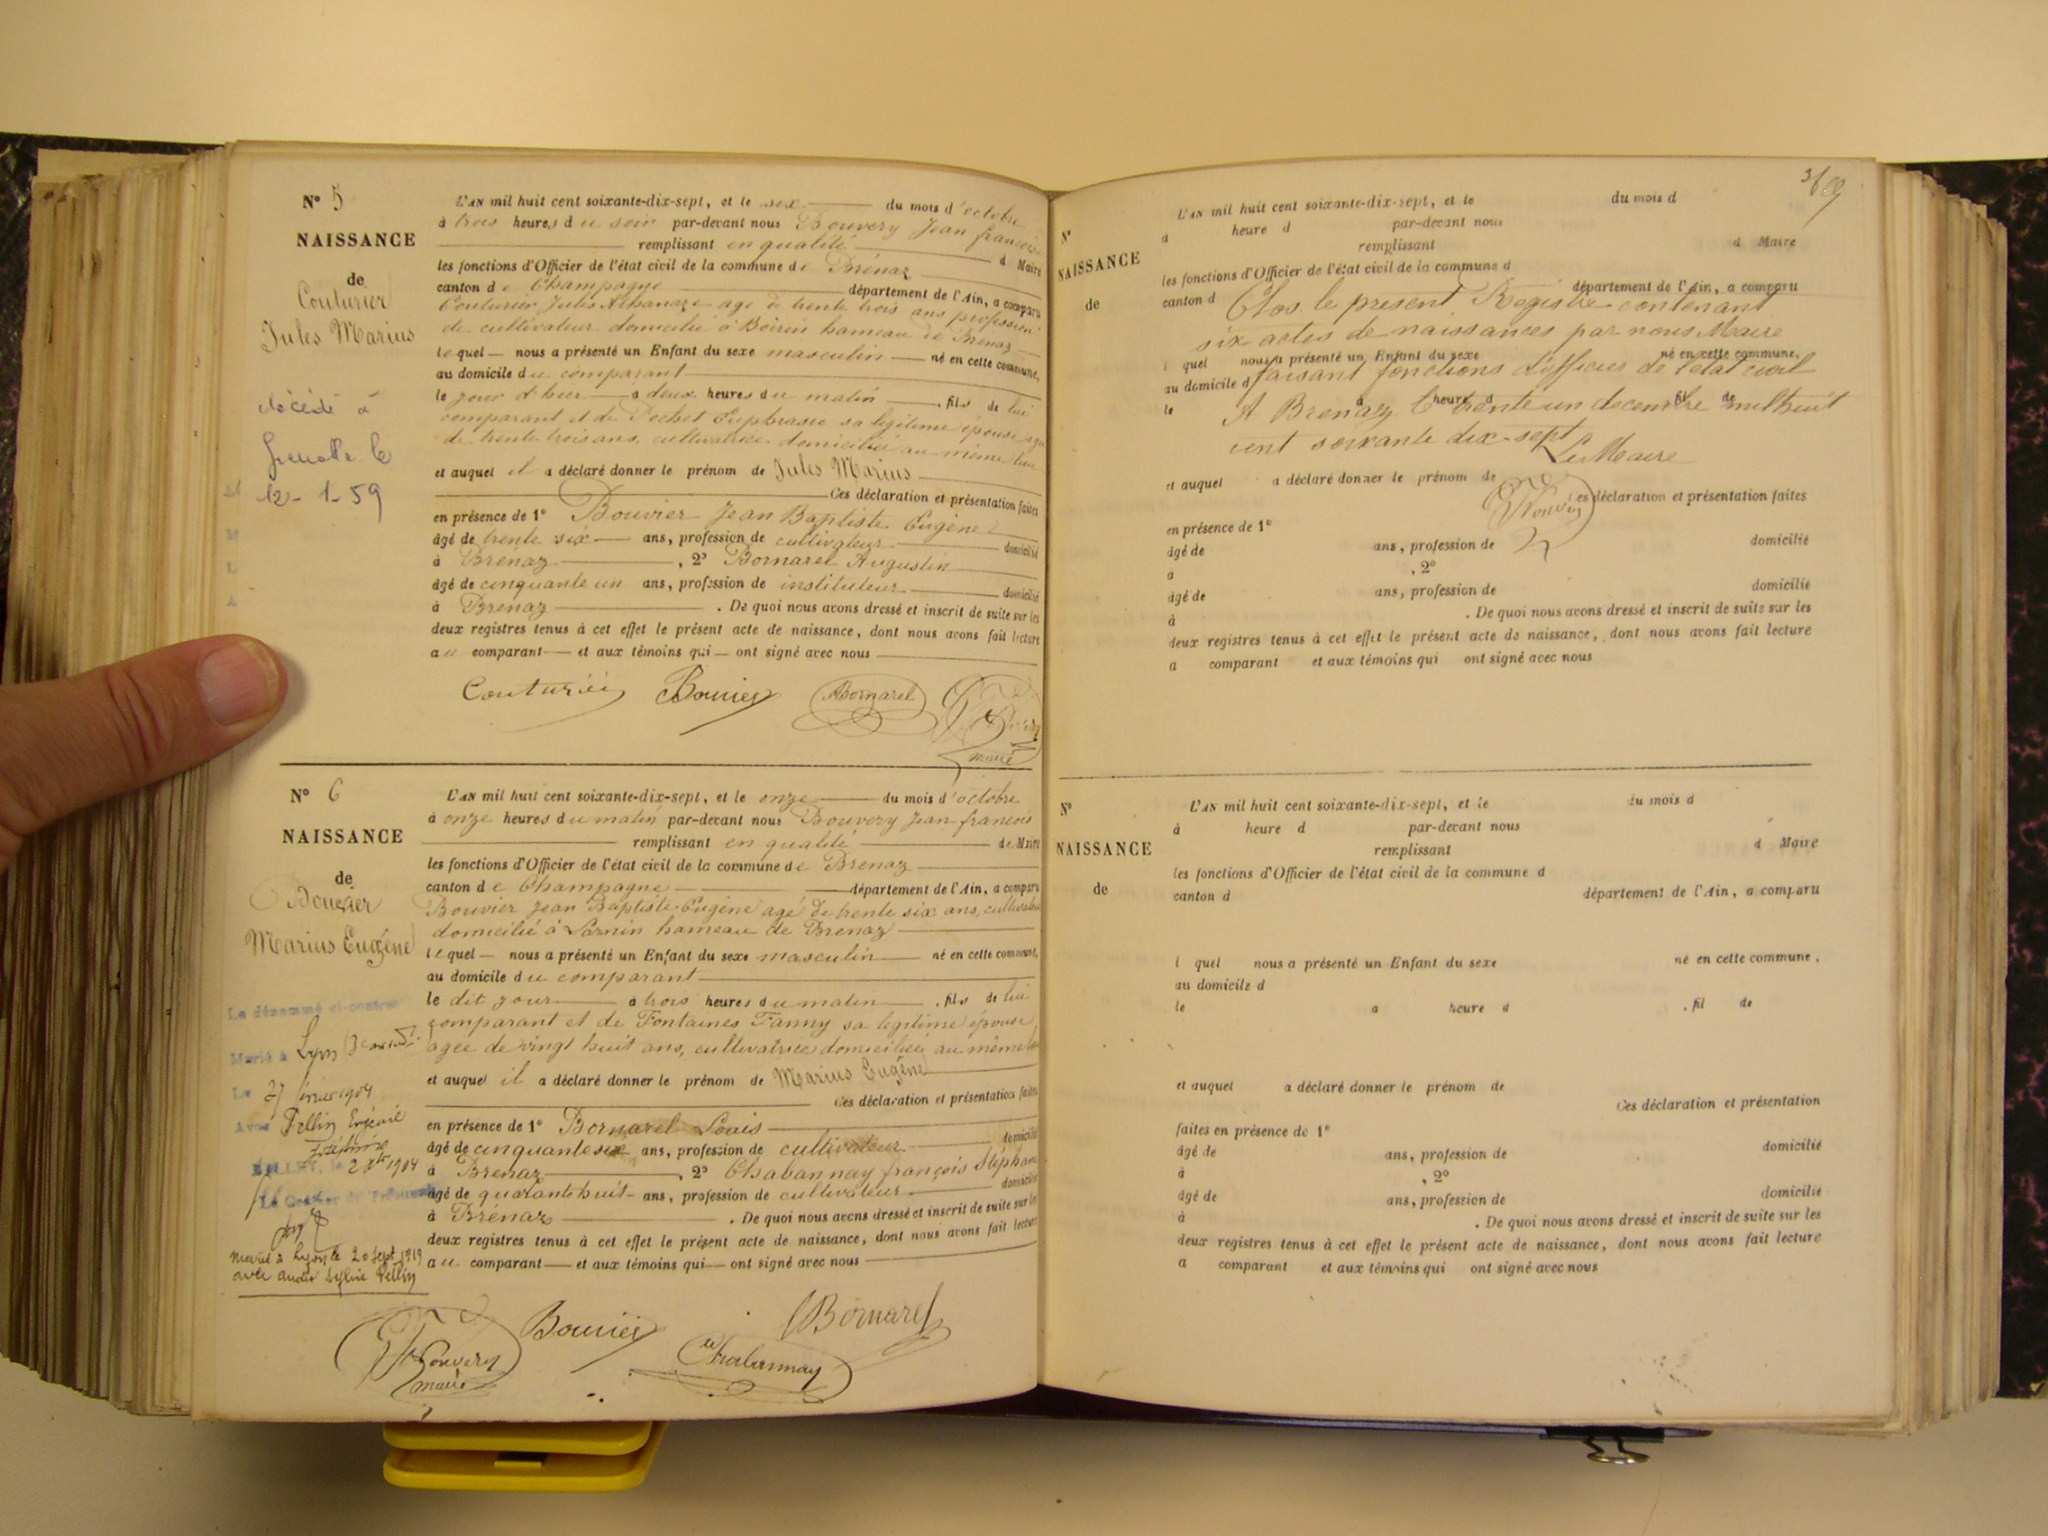 N° 5
NAISSANCE
de
Couturier
Jules Marius
décédé à
Grenoble le
12-1-59
L'AN mil huit cent soixante-dix-sept, et le six du mois d'octobre
à trois heures du soir par-devant nous Bouvery Jean françois
remplissant en qualité d Maire
les fonctions d'Officier de l'état civil de la commune de Brénaz
canton de Champagne département de l'Ain, a comparu
Couturier Jules Athanaze agé de trente trois ans profession
de cultivateur domicilié à Boirin hameau de Brénaz
lequel nous a présenté un Enfant du sexe masculin né en cette commune,
au domicile du comparant
le jour d'hier à deux heures du matin, fils de lui
comparant et de Pochet Euphrasie sa légitime épouse agée
de trente trois ans, cultivatrice domiciliée au même lieu
et auquel il a déclaré donner le prénom de Jules Marius
Ces déclaration et présentation faites
en présence de 1° Bouvier Jean Baptiste Eugène
âgé de trente six ans, profession de cultivateur domicilié
à Brénaz, 2° Bornarel Augustin
âgé de cinquante un ans, profession de instituteur domicilié
à Brénaz. De quoi nous avons dressé et inscrit de suite sur les
deux registres tenus à cet effet le présent acte de naissance, dont nous avons fait lecture
au comparant et aux témoins qui ont signé avec nous
Couturier Bouvier ABornarel
maire
N° 6
NAISSANCE
de
Bouvier
Marius Eugène
Le dénommé ci-contre
Marié à Lyon
Le 27 février 1904
Avec Pellin Eugénie
Joséphine
BELLEY, le 2 1904
Le Greffier du Tribunal
Marié à Lyon le 20 Sept 1919
avec Sylvie Pellin
L'AN mil huit cent soixante-dix-sept, et le onze du mois d'octobre
à onze heures du matin par-devant nous Bouvery Jean françois
remplissant en qualité de Maire
les fonctions d'Officier de l'état civil de la commune de Brenaz
canton de Champagne département de l'Ain, a comparu
Bouvier Jean Baptiste Eugène agé de trente six ans, cultivateur
domicilié à Lornin hameau de Brenaz
lequel nous a présenté un Enfant du sexe masculin né en cette commune,
au domicile du comparant
le dit jour à trois heures du matin, fils de lui
comparant et de Fontaines Fanny sa légitime épouse
agée de vingt huit ans, cultivatrice domiciliée au même lieu
et auquel il a déclaré donner le prénom de Marius Eugène
Ces déclaration et présentation faites
en présence de 1° Bornarel Louis
âgé de cinquante six ans, profession de cultivateur domicilié
à Brenaz, 2° Chabannay françois Stéphane
âgé de quarante huit ans, profession de cultivateur domicilié
à Brénaz. De quoi nous avons dressé et inscrit de suite sur les
deux registres tenus à cet effet le présent acte de naissance, dont nous avons fait lecture
au comparant et aux témoins qui ont signé avec nous
Bouvier Bornarel
Bouvery Chabannay
maire
N°
NAISSANCE
de
L'AN mil huit cent soixante-dix-sept, et le du mois d
à heure d par-devant nous
remplissant d Maire
les fonctions d'Officier de l'état civil de la commune d
canton d département de l'Ain, a comparu
Clos le présent Registre contenant
six actes de naissances par nous Maire
l quel nous a présenté un Enfant du sexe né en cette commune,
au domicile d
faisant fonctions d'officier de l'état civil
le à heure d fil de
A Brenaz le trente un decembre mil huit
cent soixante dix-sept
Le Maire
et auquel a déclaré donner le prénom de
Ces déclaration et présentation faites
Bouvery
en présence de 1°
âgé de ans, profession de domicilié
à , 2°
âgé de ans, profession de domicilié
à . De quoi nous avons dressé et inscrit de suite sur les
deux registres tenus à cet effet le présent acte de naissance, dont nous avons fait lecture
a comparant et aux témoins qui ont signé avec nous
N°
NAISSANCE
de
L'AN mil huit cent soixante-dix-sept, et le du mois d
à heure d par-devant nous
remplissant d Maire
les fonctions d'Officier de l'état civil de la commune d
canton d département de l'Ain, a comparu
l quel nous a présenté un Enfant du sexe né en cette commune,
au domicile d
le à heure d , fil de
et auquel a déclaré donner le prénom de
Ces déclaration et présentation
faites en présence de 1°
âgé de ans, profession de domicilié
à , 2°
âgé de ans, profession de domicilié
à . De quoi nous avons dressé et inscrit de suite sur les
deux registres tenus à cet effet le présent acte de naissance, dont nous avons fait lecture
a comparant et aux témoins qui ont signé avec nous